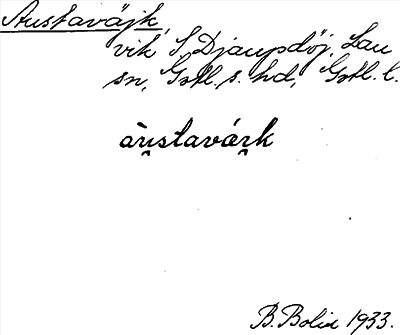 Austaväjk,
vik S Djaupdöj, Lau
sn, Gotl. s. hd, Gotl. l.
àu̯stavái̯k
B. Bolin 1933.